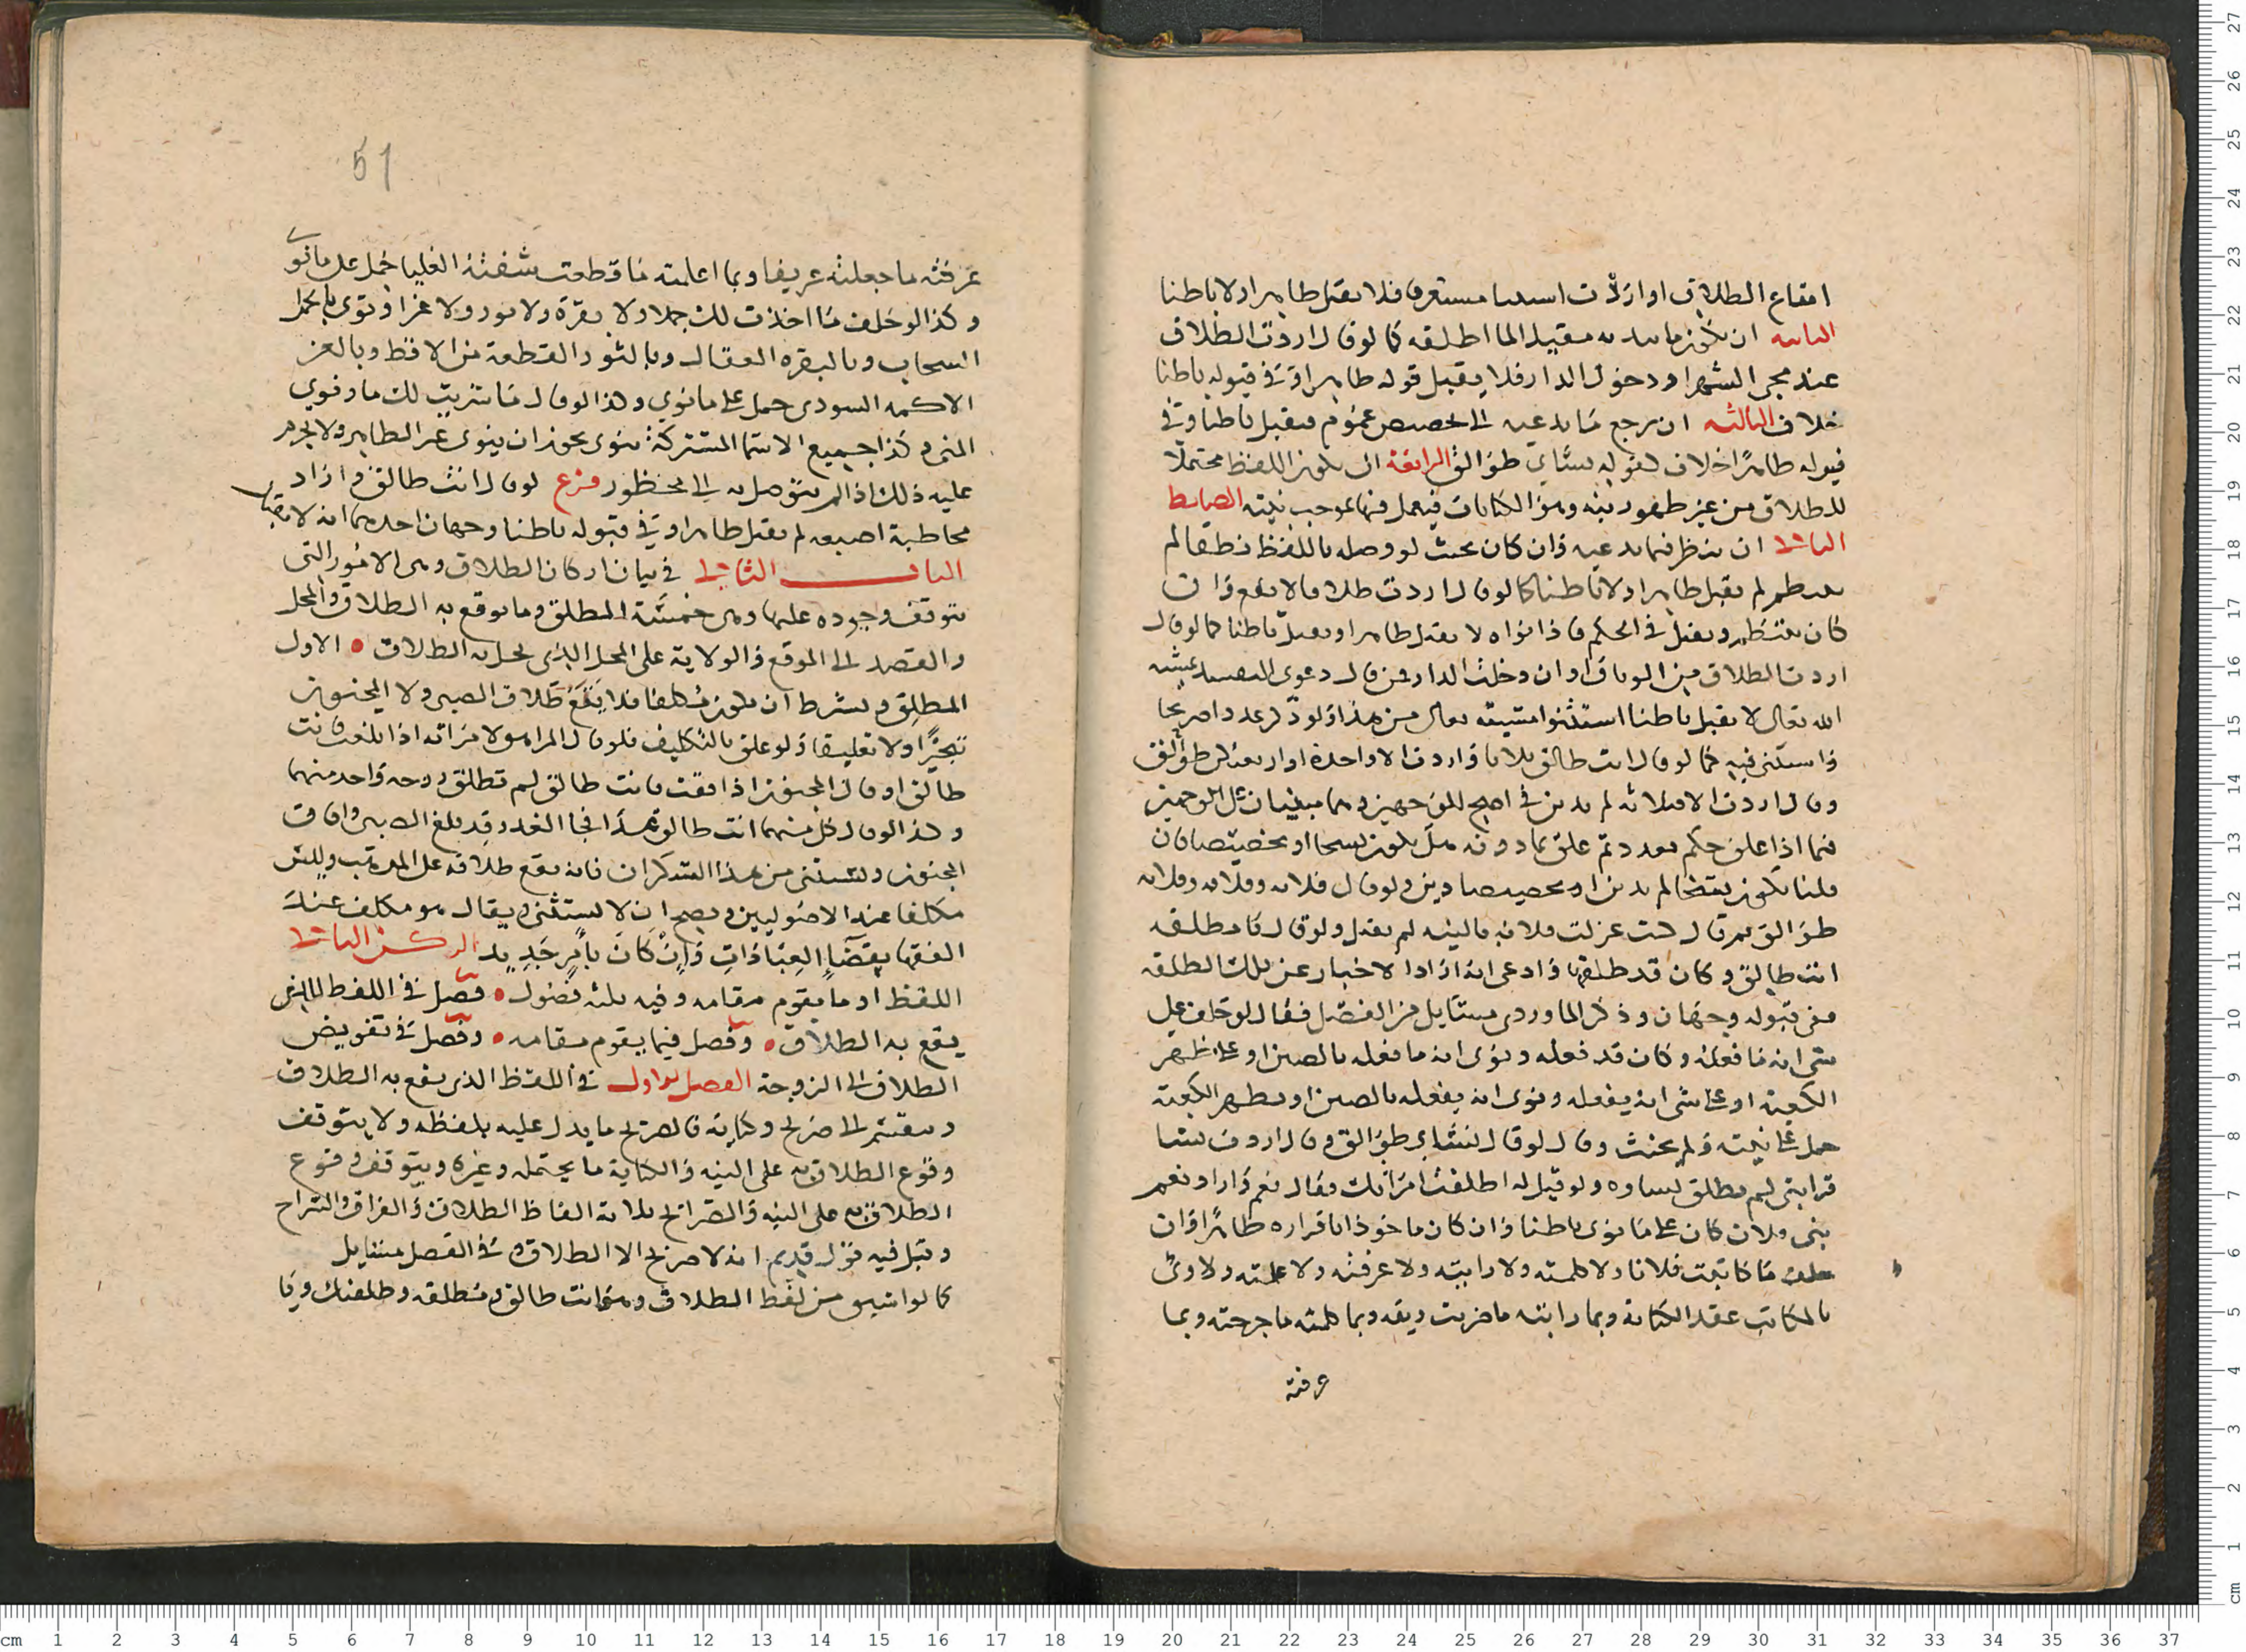 ايقاع الطلاق او اردت استثنا مستغرقا فلا يقبل ظاهرا ولا باطنا
الثانية ان يكون ما يدعيه مقيدا لما اطلقه كما لو قال اردت الطلاق
عند مجي الشهر او دخول الدار فلا يقبل قوله ظاهرا وفي قبوله باطنا
خلاف الثالثة ان يرجع ما يدعيه الى تخصيص عموم فيقبل باطنا وفي
قبوله ظاهرا خلاف كقوله نساي طوالق الرابعة ان يكون اللفظ محتملا
للطلاق من غير ظهور بينه وهو الكنايات فيعمل فيها بموجب نيته الضابط
الثاني ان ينظر فيما يدعيه فان كان بحيث لو وصله باللفظ نطقا لم
ينتظم لم يقبل ظاهرا ولا باطنا كما لو قال اردت طلاقا لا يقع وان
كان ينتظم ويقبل في الحكم فاذا نواه لا يقبل ظاهرا ويقبل باطنا كما لو قال
اردت الطلاق من الوثاق او ان دخلت الدار
الله تعالى لا يقبل باطنا استثنوا مشيئة تعالى من هذا ولو ذكر عددا صريحا
واستثنى فيه كما لو قال انت طالق ثلاثا واردت الا واحدة او اربعتكن طوالق
وقال اردت الا فلانة لم يدين في اصح الوجهين وهما مبنيان على الوجهين
فيما اذا علق حكم بعدد ثم علق بما دونه هل يكون نسخا او تخصيصا فان
قلنا يكون نسخا لم يدين او تخصيصا دين ولو قال فلانة وفلانة وفلانة
طوالق ثم قال كنت عزلت فلانة بالنية لم يقبل ولو قال يا مطلقة
انت طالق وكان قد طلقها وادعى انه اراد الاخبار عن تلك الطلقة
ففي قبوله وجهان وذكر الماوردي مسايل من الفصل فقال لو حلف على
شى انه ما فعله وكان قد فعله ونوى انه ما فعله بالصين او على ظهر
الكعبة او على شى انه يفعله ونوى انه يفعله بالصين او بظهر الكعبة
حمل على نيته ولم يحنث وقال لو قال نساي طوالق وقال اردت نسا
قرابتي لم تطلق نساوه ولو قيل له اطلقت امراتك فقال نعم واراد نعم
بني فلان كان على ما نوى باطنا وان كان ماخوذا باقراره ظاهرا وان
حلف ما كاتبت فلانا ولا كلمته ولا رايته ولا عرفته ولا علمته
بالمكاتب عقد الكتابة وبما رايته ما ضربت ريته وبما كلمته ما جرحته وبما
عرفته
51
عرفته ما جعلته عريفا وبما اعلمته ما قطعت شفته العليا حمل على ما نوى
وكذا لو حلف ما اخذت لك جملا ولا بقرة ولا ثورا ولا عنزا ونوى بالجمل
السحاب وبالبقرة العيال وبالثور القطعة من الاقط وبالعنز
الاكمة السودى حمل على ما نوى وكذا لو قال ما شربت لك ما ونوي
المنى وكذا جميع الاسما المشتركة ينوى يجوز ان ينوى غير الظاهر ولا يحرم
عليه ذلك اذا لم يتوصل به الى محظور فرع لو قال انت طالق واراد
مخاطبة اصبعه لم يقبل ظاهرا وفي قبوله باطنا وجهان احدهما انه لا يقبل
الباب الثاني في بيان اركان الطلاق وهى الامور التي
يتوقف وجوده عليها وهى خمسة المطلق وما يوقع به الطلاق والمحل
والقصد الى الموقع والولاية على المحل الذى يحل به الطلاق الاول
المطلق ويشترط ان يكون مكلفا فلا يقع طلاق الصبى ولا المجنون
تنجيزا ولا تعليقا ولو علق بالتكليف فلو قال المراهق لامراته اذا بلغت فانت
طالق او قال المجنون اذا افقت فانت طالق لم تطلق زوجة واحد منهما
وكذا لو قال كل منهما انت طالق غدا فجا الغد وقد بلغ الصبى وافاق
المجنون ويستثنى من هذا السكران فانه يقع طلاقه على المذهب وليس
مكلفا عند الاصوليين ويصح ان لا يستثنى ويقال هو مكلف عند
الفقها بقضاء العبادات وان كان بامر جديد الركن الثاني
اللفظ او ما يقوم مقامه وفيه ثلثة فصول فصل في اللفظ الذي
يقع به الطلاق وفصل فيما يقوم مقامه وفصل في تفويض
الطلاق الى الزوجة الفصل الاول في اللفظ الذى يقع به الطلاق
وينقسم الى صريح وكناية فالصريح ما يدل عليه بلفظه ولا يتوقف
وقوع الطلاق به على النية والكناية ما يحتمله وغيره ويتوقف وقوع
الطلاق به على النية والصرايح ثلاثة الفاظ الطلاق والفراق والسراح
وقيل فيه قول قديم انه لا صريح الا الطلاق وفي الفصل مسايل
كما لو اشتق من لفظ الطلاق وهو انت طالق ومطلقة وطلقتك ويا